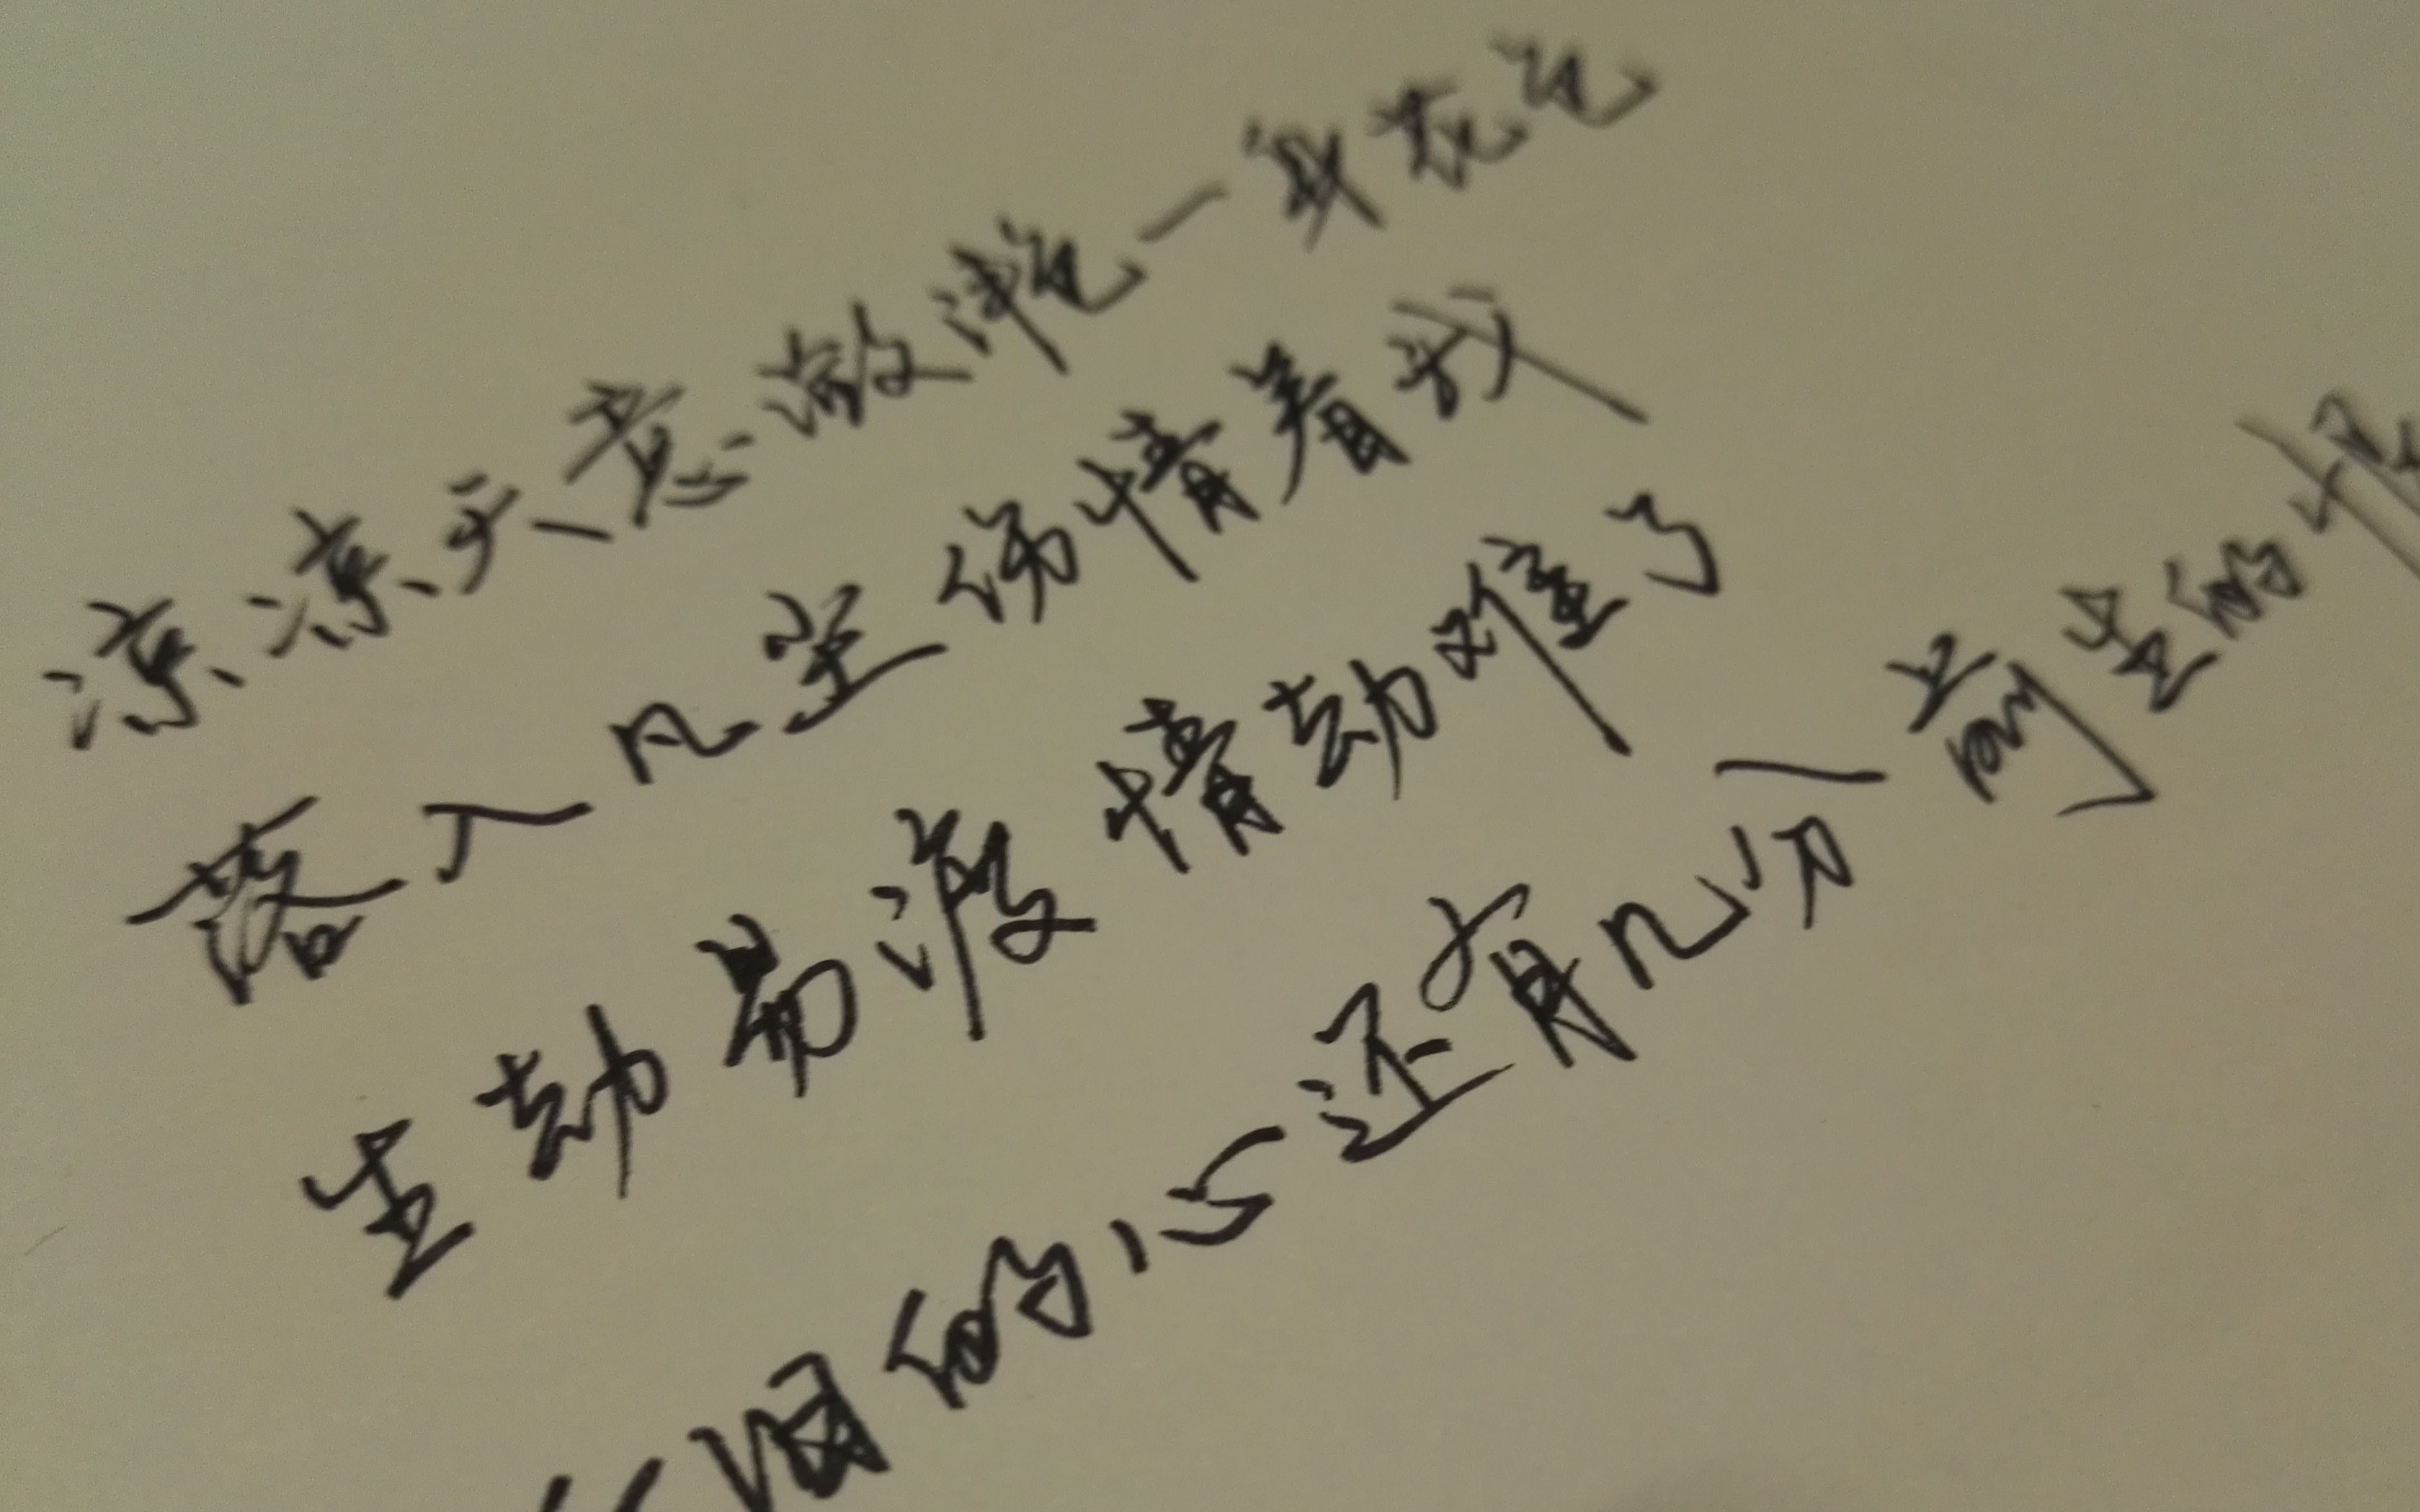 凉凉天意潋滟一身花色
落入凡尘伤情着我
生劫易渡情劫难了
的心还有几分前生的